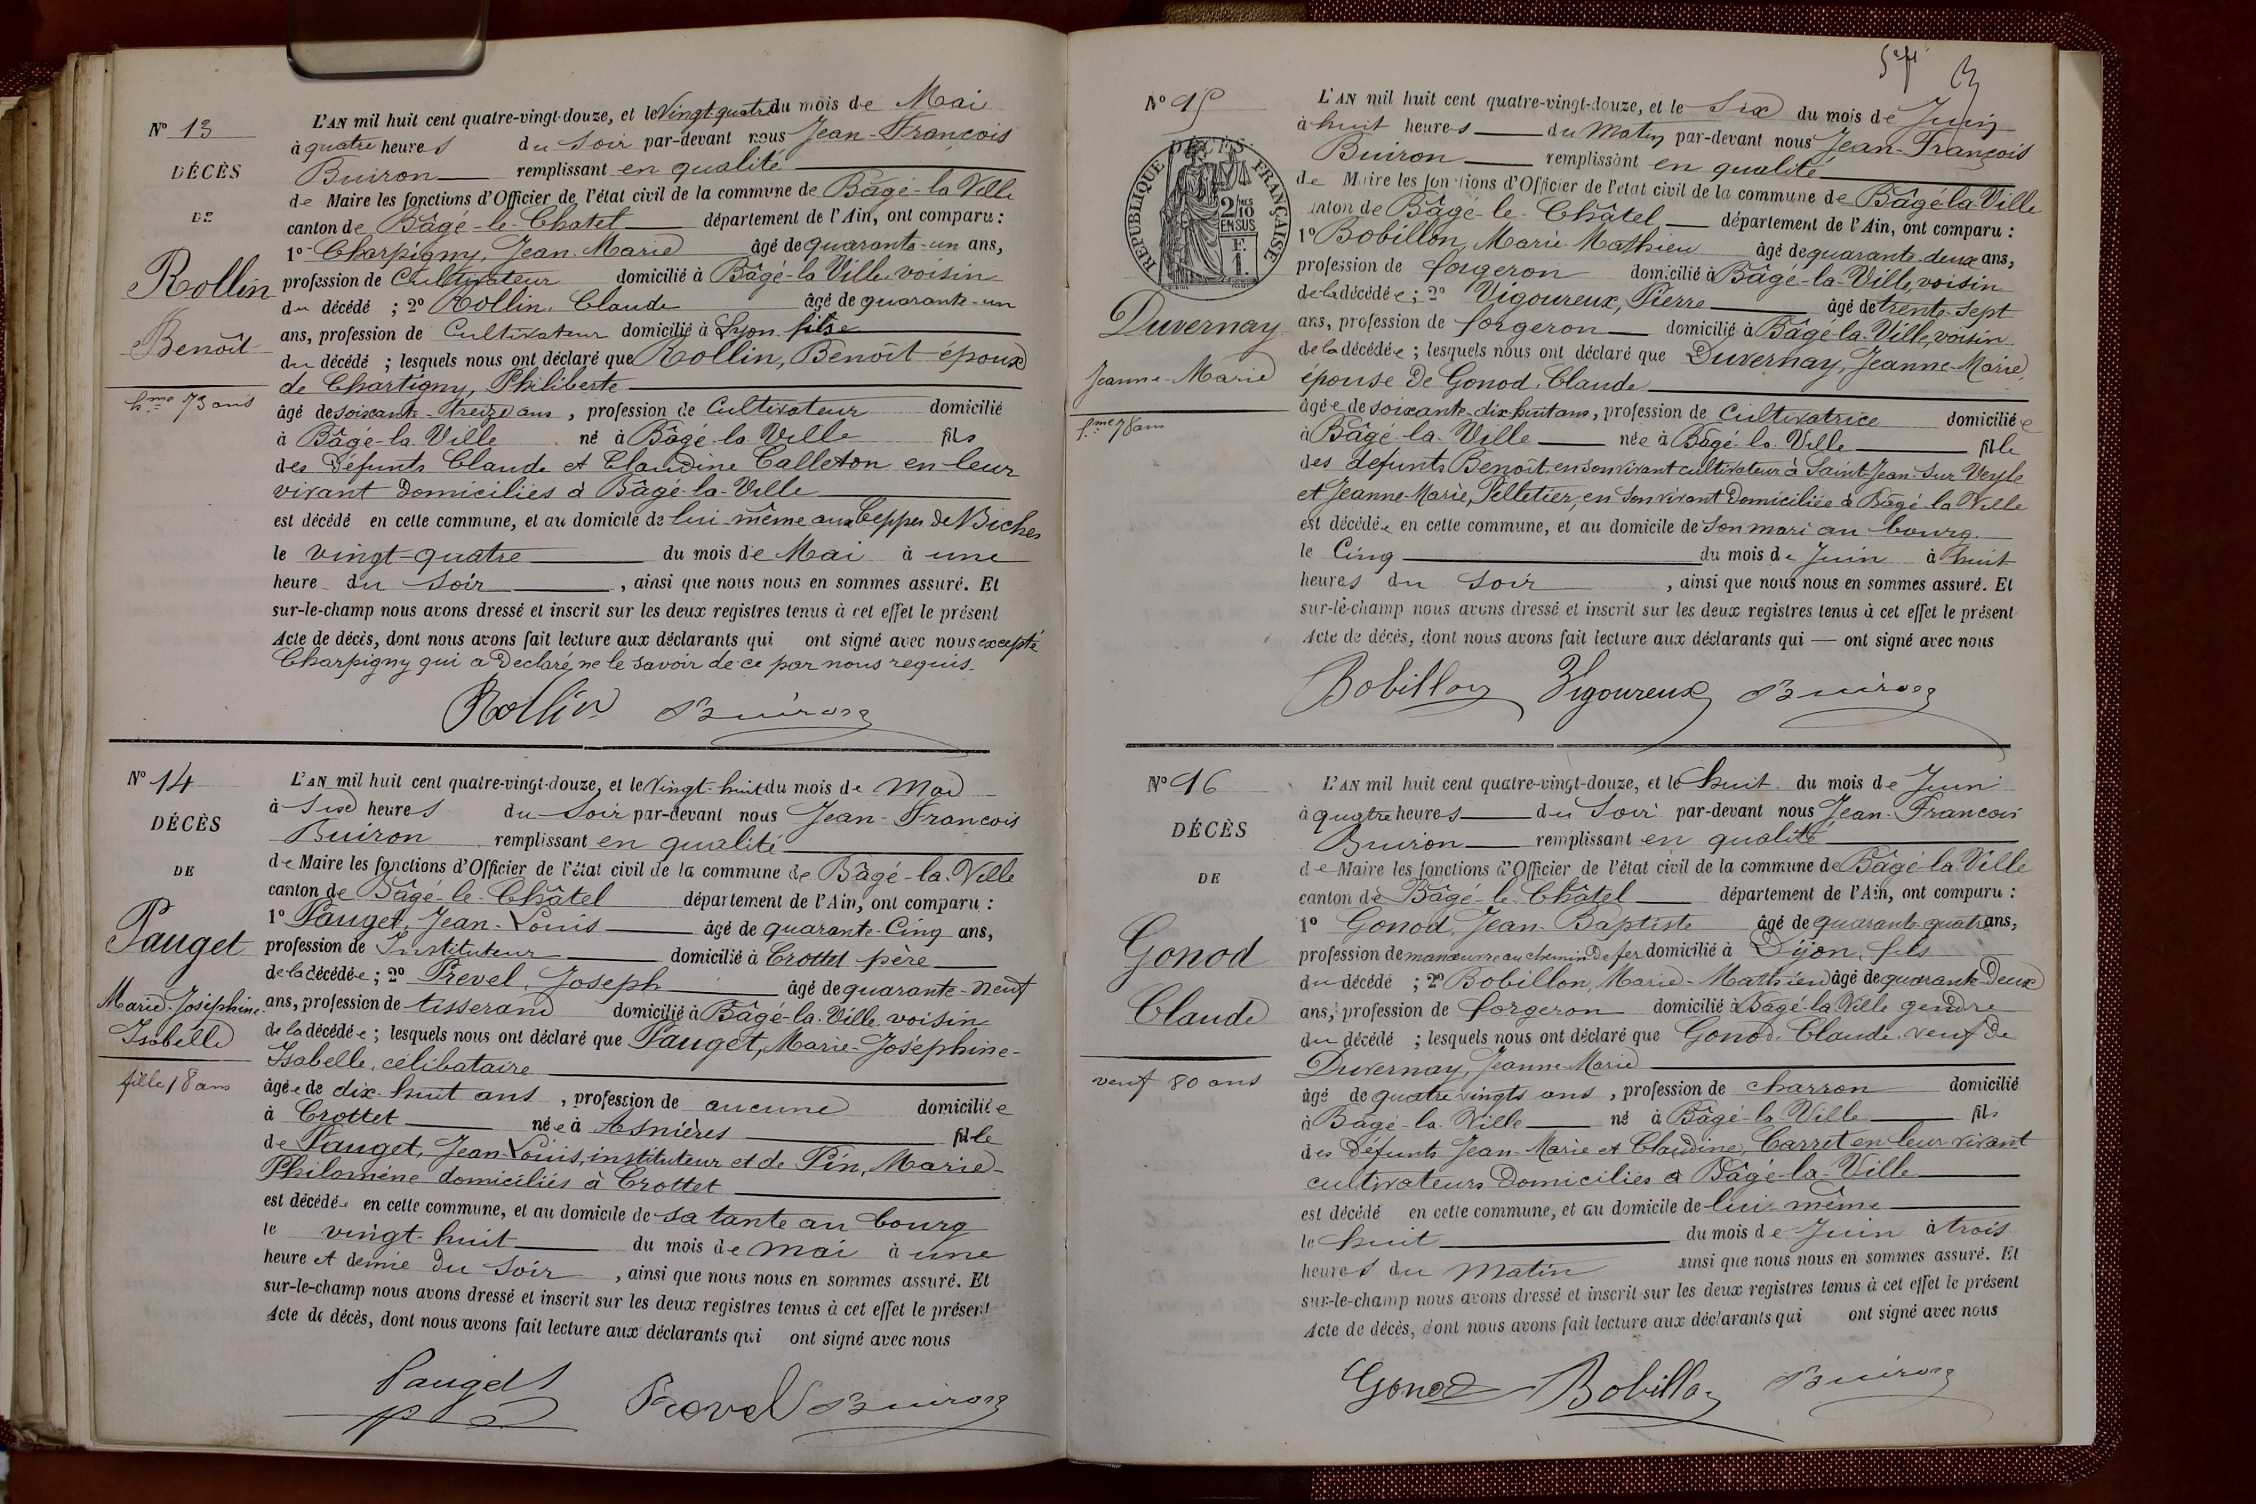 N° 13
DÉCÈS
DE
Rollin
Benoît
h.me 73 ans
L'AN mil huit cent quatre-vingt-douze, et le Vingt quatre du mois de Mai
à quatre heures du Soir par-devant nous Jean-François
Buiron remplissant en qualité
de Maire les fonctions d'Officier de l'état civil de la commune de Bâgé-la-Ville
canton de Bâgé-le-Chatel département de l'Ain, ont comparu :
1° Charpigny, Jean-Marie âgé de quarante-un ans,
profession de Cultivateur domicilié à Bâgé-la-Ville voisin
du décédé ; 2° Rollin, Claude âgé de quarante-un
ans, profession de Cultivateur domicilié à Lyon fils
du décédé ; lesquels nous ont déclaré que Rollin, Benoît époux
de Chartigny, Philiberte
âgé de soixante-treize ans, profession de Cultivateur domicilié
à Bâgé-la-Ville né à Bâgé-la-Ville fils
des défunts Claude et Claudine Calleton en leur
vivant domiciliés à Bâgé-la-Ville
est décédé en cette commune, et au domicile de lui-même aux Ceppes de Biches
le vingt-quatre du mois de Mai à une
heure du Soir, ainsi que nous nous en sommes assuré. Et
sur-le-champ nous avons dressé et inscrit sur les deux registres tenus à cet effet le présent
Acte de décès, dont nous avons fait lecture aux déclarants qui ont signé avec nous excepté
Charpigny qui a déclaré ne le savoir de ce par nous requis.
Rollin Buiron
N° 14
DÉCÈS
DE
Pauget
Marie-Joséphine-
Isabelle
fille 18 ans
L'AN mil huit cent quatre-vingt-douze, et le Vingt-huit du mois de Mai
à Six heures du Soir par-devant nous Jean-François
Buiron remplissant en qualité
de Maire les fonctions d'Officier de l'état civil de la commune de Bâgé-la-Ville
canton de Bâgé-le-Châtel département de l'Ain, ont comparu :
1° Pauget, Jean-Louis âgé de quarante-Cinq ans,
profession de Instituteur domicilié à Crottet père
de la décédée ; 2° Prevel, Joseph âgé de quarante-neuf
ans, profession de tisserand domicilié à Bâgé-la-Ville voisin
de la décédée ; lesquels nous ont déclaré que Pauget, Marie-Joséphine-
Isabelle, célibataire
âgée de dix-huit ans, profession de aucune domiciliée
à Crottet née à Asnières fille
de Pauget, Jean-Louis, instituteur et de Pin, Marie-
Philomène domiciliés à Crottet
est décédée en cette commune, et au domicile de sa tante au bourg
le vingt-huit du mois de mai à une
heure et demie du Soir, ainsi que nous nous en sommes assuré. Et
sur-le-champ nous avons dressé et inscrit sur les deux registres tenus à cet effet le présent
Acte de décès, dont nous avons fait lecture aux déclarants qui ont signé avec nous
Pauget Prevel Buiron
Sept
N° 15
DÉCÈS
RÉPUBLIQUE FRANÇAISE
2/10 EN SUS
Duvernay
Jeanne-Marie
f.me 78 ans
L'AN mil huit cent quatre-vingt-douze, et le Six du mois de Juin
à huit heures du Matin par-devant nous Jean-François
Buiron remplissant en qualité
de Maire les fonctions d'Officier de l'état civil de la commune de Bâgé-la-Ville
canton de Bâgé-le-Châtel département de l'Ain, ont comparu :
1° Bobillon, Marie-Mathieu âgé de quarante-deux ans,
profession de forgeron domicilié à Bâgé-la-Ville, voisin
de la décédée ; 2° Vigoureux, Pierre âgé de trente-sept
ans, profession de forgeron domicilié à Bâgé-la-Ville, voisin
de la décédée ; lesquels nous ont déclaré que Duvernay, Jeanne-Marie,
épouse de Gonod, Claude
âgée de soixante-dix-huit ans, profession de Cultivatrice domiciliée
à Bâgé-la-Ville née à Bâgé-la-Ville fille
des défunts Benoît en son vivant cultivateur à Saint-Jean-sur-Veyle
et Jeanne-Marie, Pelletier, en son vivant domiciliée à Bâgé-la-Ville
est décédée en cette commune, et au domicile de son mari au bourg
le Cinq du mois de Juin à huit
heures du Soir, ainsi que nous nous en sommes assuré. Et
sur-le-champ nous avons dressé et inscrit sur les deux registres tenus à cet effet le présent
Acte de décès, dont nous avons fait lecture aux déclarants qui ont signé avec nous
Bobillon Vigoureux Buiron
N° 16
DÉCÈS
DE
Gonod
Claude
veuf 80 ans
L'AN mil huit cent quatre-vingt-douze, et le huit du mois de Juin
à quatre heures du Soir par-devant nous Jean-François
Buiron remplissant en qualité
de Maire les fonctions d'Officier de l'état civil de la commune de Bâgé-la-Ville
canton de Bâgé-le-Châtel département de l'Ain, ont comparu :
1° Gonod, Jean-Baptiste âgé de quarante-quatre ans,
profession de manœuvre au chemin de fer domicilié à Dijon, fils
du décédé ; 2° Bobillon, Marie-Mathieu âgé de quarante-deux
ans, profession de forgeron domicilié à Bâgé-la-Ville gendre
du décédé ; lesquels nous ont déclaré que Gonod, Claude, veuf de
Duvernay, Jeanne-Marie
âgé de quatre-vingts ans, profession de charron domicilié
à Bâgé-la-Ville né à Bâgé-la-Ville fils
des défunts Jean-Marie et Claudine, Carret en leur vivant
cultivateurs domiciliés à Bâgé-la-Ville
est décédé en cette commune, et au domicile de lui-même
le huit du mois de Juin à trois
heures du Matin ainsi que nous nous en sommes assuré. Et
sur-le-champ nous avons dressé et inscrit sur les deux registres tenus à cet effet le présent
Acte de décès, dont nous avons fait lecture aux déclarants qui ont signé avec nous
Gonod Bobillon Buiron